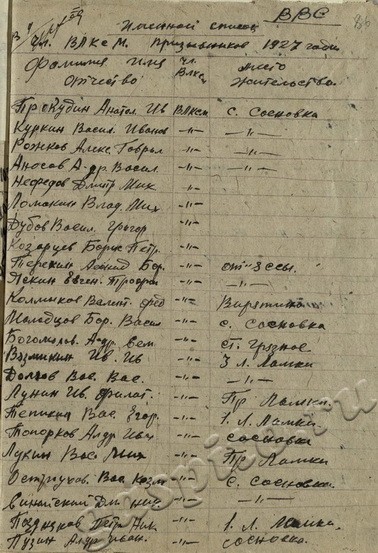 ВВС
Именной список
чл. ВЛКСМ. призывников 1927 года
Фамилия Имя чл. место
отчество ВЛКСМ жительства
Прокудин Анатол. Ив ВЛКСМ с. Сосновка
Куркин Васил. Иванов -"- -"-
Рожков Алекс. Гаврил -"- -"-
Аносов А-др. Васил. -"- -"-
Нефедов Дмитр Мих -"-
Ломакин Влад. Мих -"-
Дубов Васил. Григор -"-
Козарцев Борис Петр. -"-
Терехин Леонид Бор. -"-
Евген. -"- -"-
Колмиков Валент. Фед -"-
Молодцов Бор. Васил -"- с. Сосновка
Богомолов. А-др. Сем. -"- Ст. Грязное
Ив. Ив -"- 3 Л. Ламки
Долгов Вас. Вас. -"- -"-
Лунин Ив. Филат. -"- Пр Ламки.
Тепикин Вас. Егор. -"- 1. Л. Ламки.
Топорков Алдр Ив -"- Сосновка
Лукин Вас. Мих -"- Пр. Ламки
Остроухов. Вас. Козм -"- С. Сосновка.
Дм. Ник -"- -"-
Петр Ник. -"- 1. Л. Ламки.
Пузин Алдр Иван. -"- Сосновка.